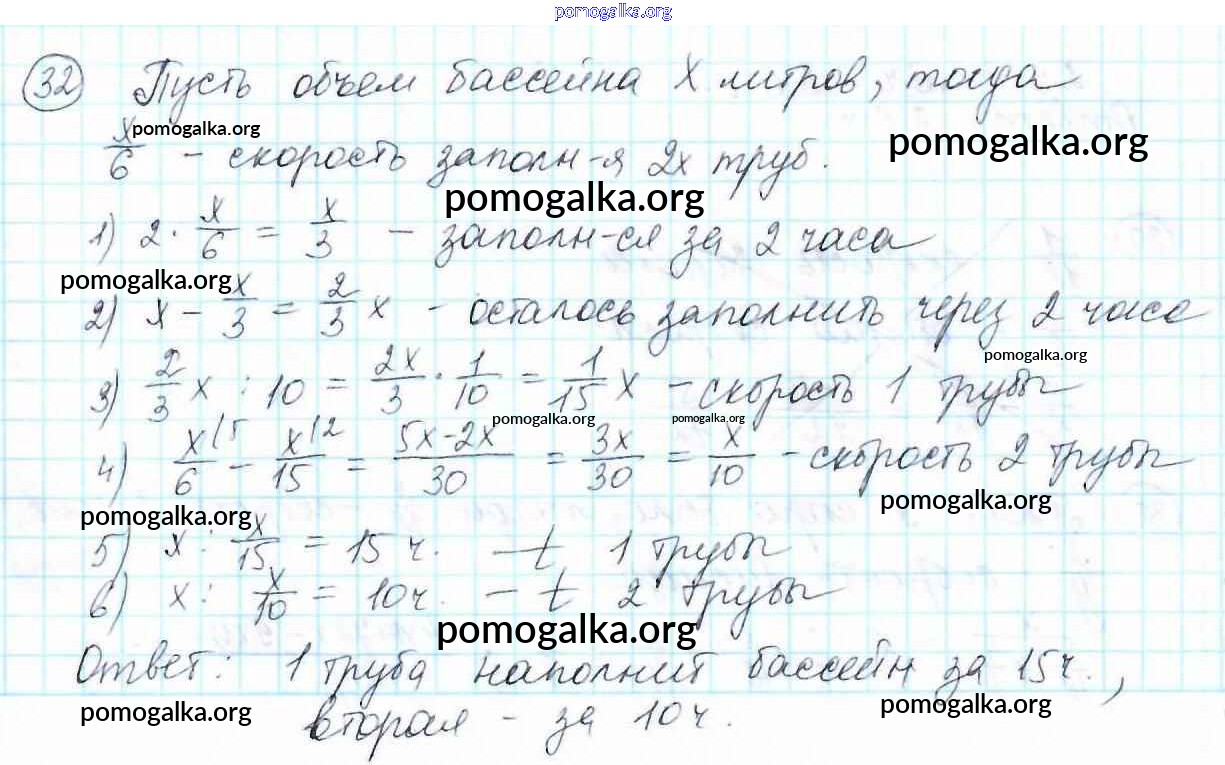 pomogalka.org
32 Пусть объем бассейна x литров, тогда
pomogalka.org
pomogalka.org
x/6 - скорость заполн-я 2х труб.
pomogalka.org
1) 2 · x/6 = x/3 - заполн-ся за 2 часа
pomogalka.org
2) x - x/3 = 2/3 x - осталось заполнить через 2 часа
pomogalka.org
3) 2/3 x : 10 = 2x/3 · 1/10 = 1/15 x - скорость 1 трубы
pomogalka.org pomogalka.org
4) x/6 \5 - x/15 \2 = 5x-2x/30 = 3x/30 = x/10 - скорость 2 трубы
pomogalka.org
pomogalka.org
5) x : x/15 = 15 ч. - t 1 трубы
6) x : x/10 = 10ч. - t 2 трубы
pomogalka.org
Ответ: 1 труба наполнит бассейн за 15ч.,
pomogalka.org pomogalka.org
вторая - за 10ч.